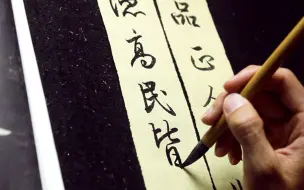 品正人
德高民皆